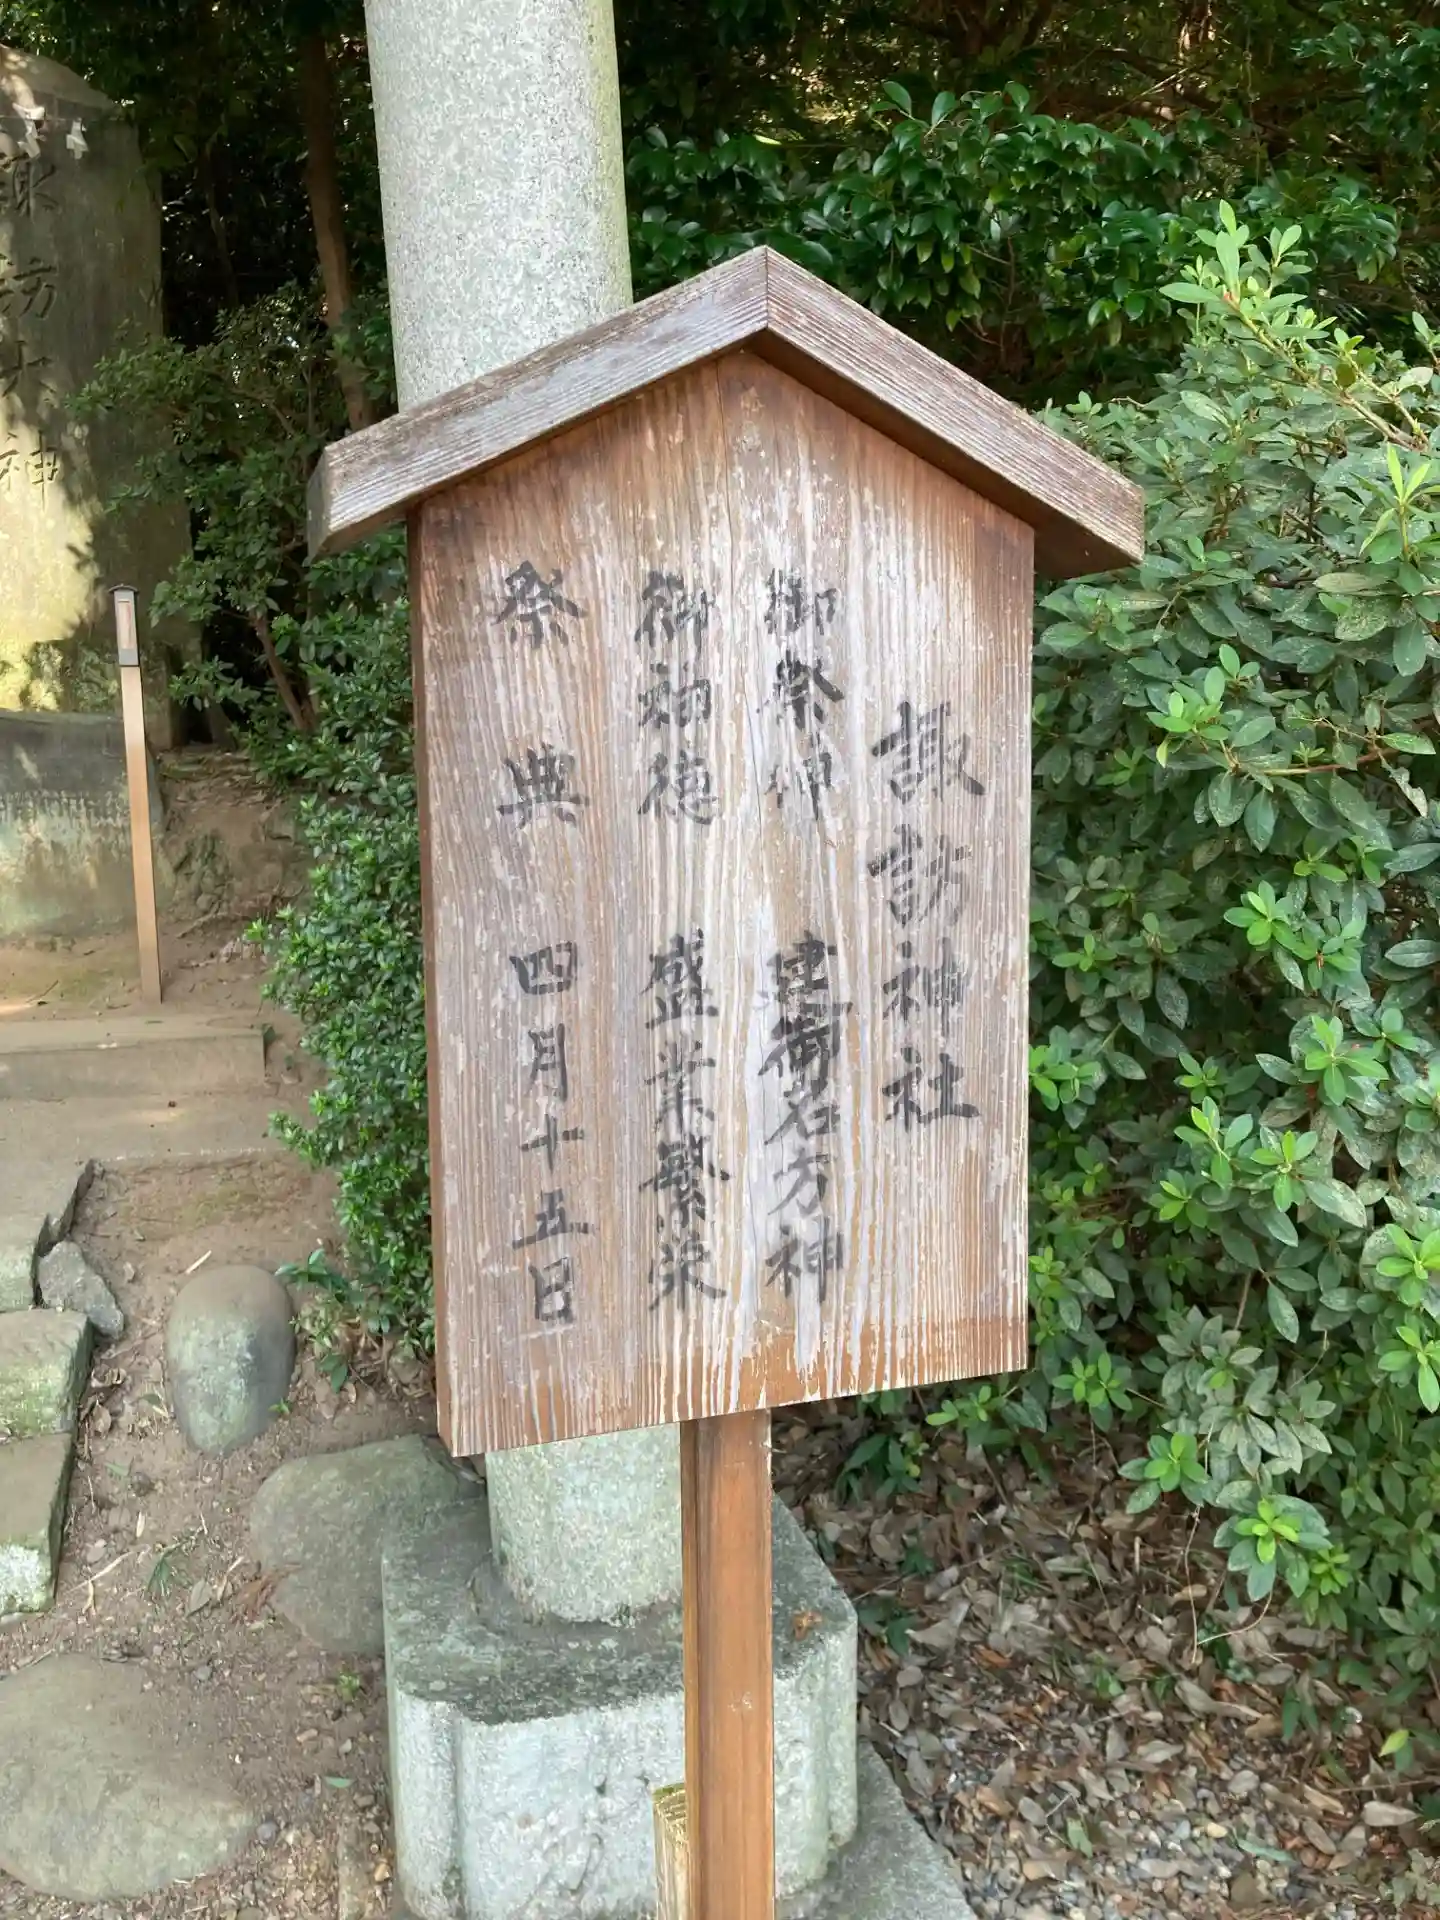 諏訪神社
御祭神 建御名方神
御神徳 盛業繁栄
祭典 四月十五日
諏訪大神